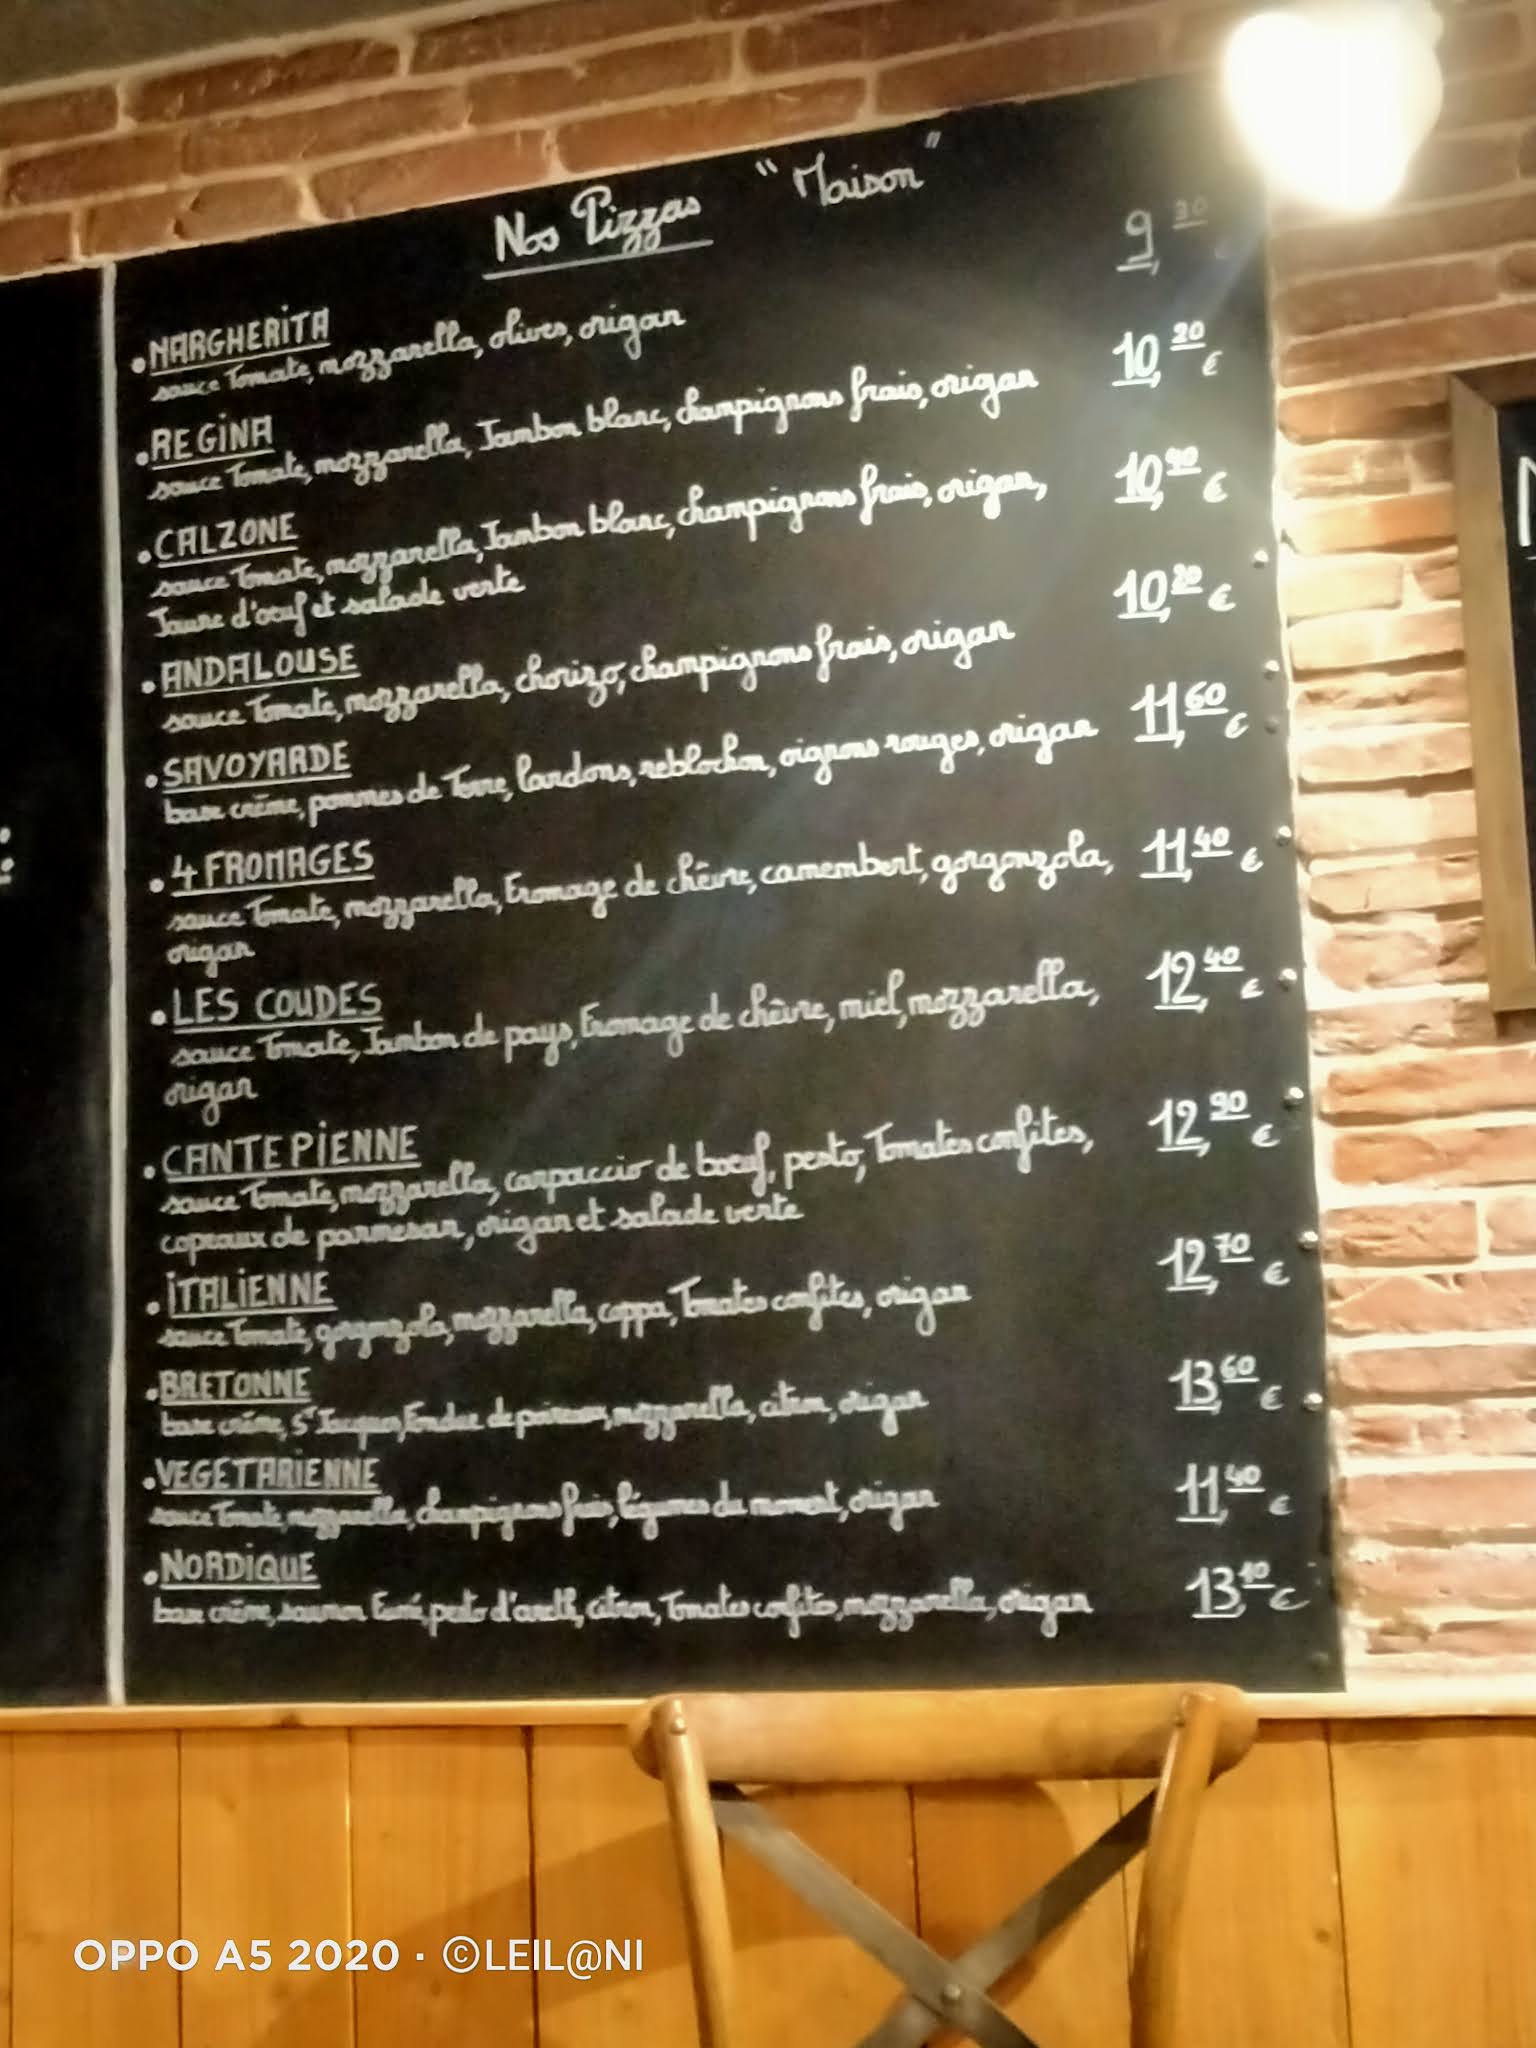 Nos Pizzas "Maison"
• MARGHERITA 9,30 €
sauce Tomate, mozzarella, olives, origan
• REGINA 10,20 €
sauce Tomate, mozzarella, Jambon blanc, champignons frais, origan
• CALZONE 10,90 €
sauce Tomate, mozzarella, Jambon blanc, champignons frais, origan,
Jaune d'oeuf et salade verte
• ANDALOUSE 10,20 €
sauce Tomate, mozzarella, chorizo, champignons frais, origan
• SAVOYARDE 11,60 €
base crème, pommes de Terre, lardons, reblochon, oignons rouges, origan
• 4 FROMAGES 11,40 €
sauce Tomate, mozzarella, Fromage de chèvre, camembert, gorgonzola,
origan
• LES COUDES 12,40 €
sauce Tomate, Jambon de pays, Fromage de chèvre, miel, mozzarella,
origan
• CANTEPIENNE 12,90 €
sauce Tomate, mozzarella, carpaccio de boeuf, pesto, Tomates confites,
copeaux de parmesan, origan et salade verte
• ITALIENNE 12,70 €
sauce Tomate, gorgonzola, mozzarella, coppa, Tomates confites, origan
• BRETONNE 13,60 €
base crème, St Jacques, Fondue de poireaux, mozzarella, citron, origan
• VEGETARIENNE 11,40 €
sauce Tomate, mozzarella, champignons frais, légumes du moment, origan
• NORDIQUE 13,10 €
base crème, saumon Fumé, pesto d'aneth, citron, Tomates confites, mozzarella, origan
OPPO A5 2020 · ©LEIL@NI